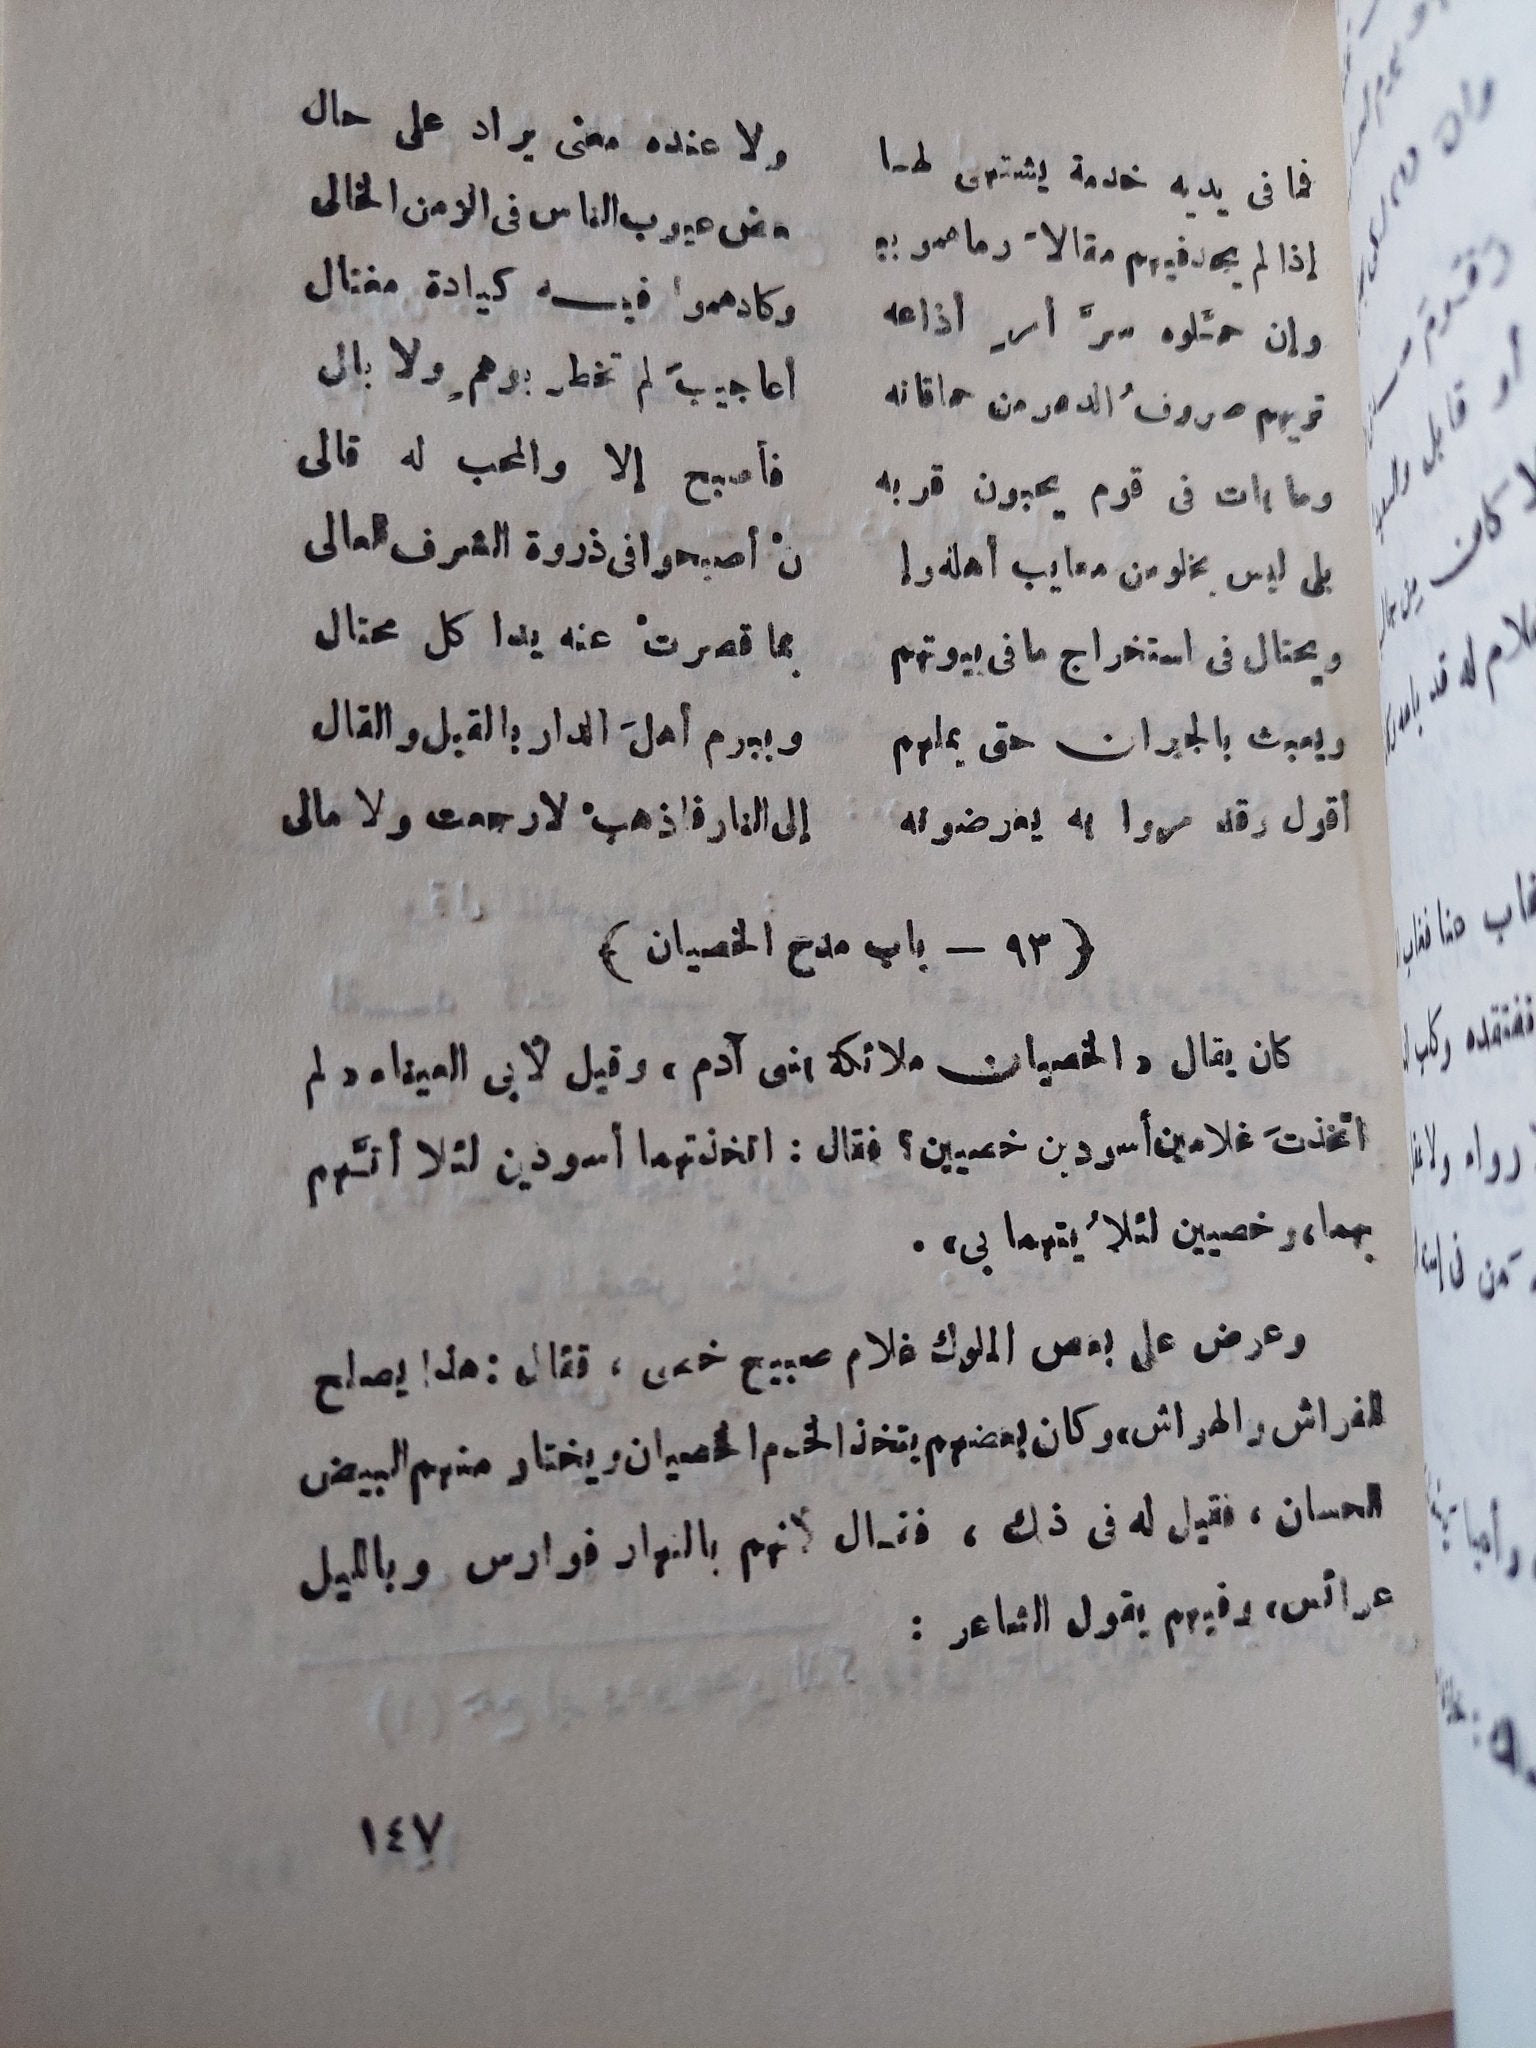 فما فى يديه خدمة يشتهى لها ولا عنده معنى يراد على حال
إذا لم يجد فيهم مقالاً رماهمو به بعض عيوب الناس فى الزمن الخالى
وإن حمَّلوه سرَّ أمرٍ أذاعه وكادهموا فيه كيادة مغتال
تريهم صروفُ الدهر من حماقاته أعاجيبَ لم تخطر بوهمٍ ولا بال
وما بات فى قوم يحبون قربه فأصبح إلا والمحب له قالى
بلى ليس يخلو من معايب أهله وإ نْ أصبحوا فى ذروة الشرف العالى
ويحتال فى استخراج ما فى بيوتهم بما قصرتْ عنه يدا كل محتال
ويعبث بالجيران حتى يملهم ويبرم أهلَ الدار بالقيل والقال
أقول وقد مروا به يعرضونه إلى النار فاذهبْ لا رجعت ولا مالى
﴿ ٩٣ — باب مدح الخصيان ﴾
كان يقال « الخصيان ملائكة بنى آدم ، وقيل لأبى العيناء « لم
اتخذتَ غلامين أسودين خصيين ؟ فقال : اتخذتهما أسودين لئلا أتَّهم
بهما ، وخصيين لئلا ُيتهما بى » .
وعرض على بعض الملوك غلام صبيح خصى ، فقال : هذا يصلح
للفراش والهراش ، وكان بعضهم يتخذ الخدم الخصيان ويختار منهم البيض
الحسان ، فقيل له فى ذلك ، فقال لأنهم بالنهار فوارس وبالليل
عرائس ، وفيهم يقول الشاعر :
١٤٧